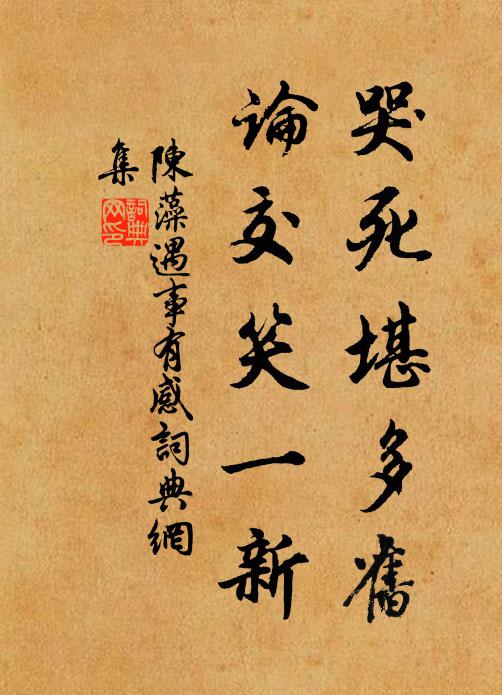 哭死堪多舊
論交笑一新
陳藻遇事有感詞典網
集
詞典网印